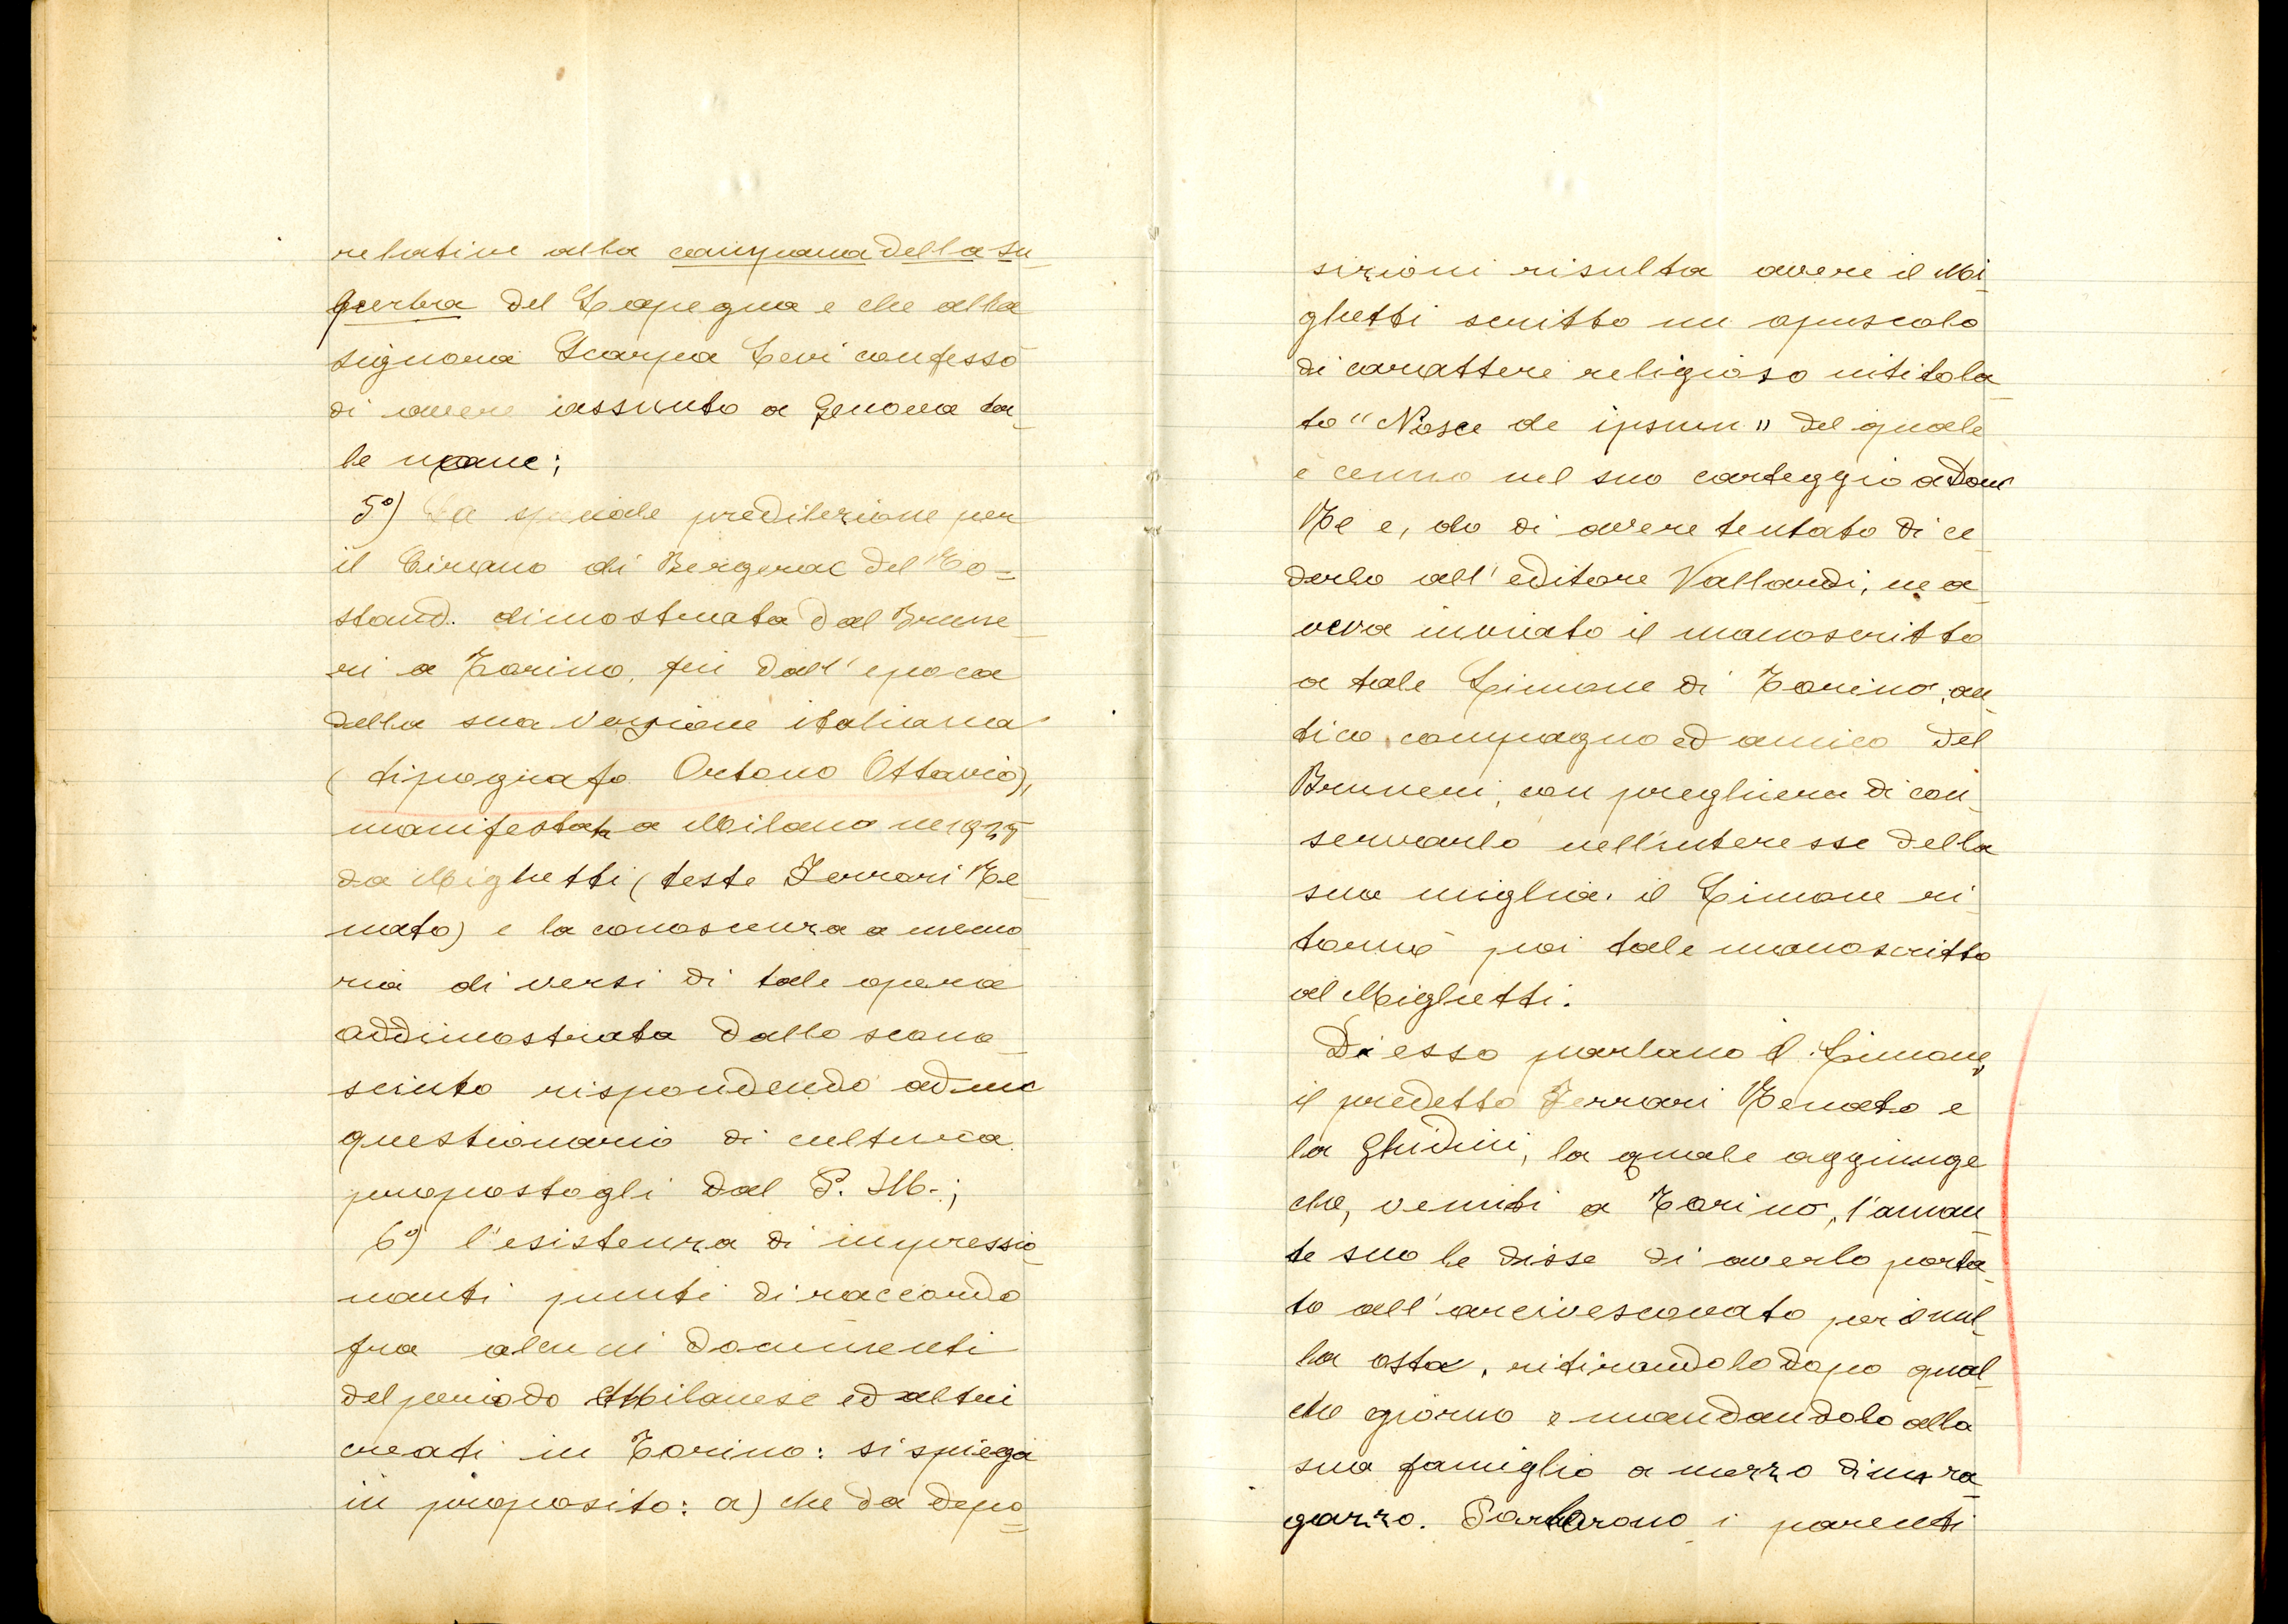 relative alla campana della su
perbia del Lapegna e che alla
signora Scarpa Levi confessò
di avere assunto a Genova ta
le nome;
5°) La speciale predilezione per
il Cirano di Bergerac del Ro=
stand. dimostrata dal Brune
ri a Torino, fin dall'epoca
della sua versione italiana
(tipografo Ortono Ottavio),
manifestata a Milano nel 1925
da Mighetti (teste Ferrari Re
nato) e la conoscenza a memo
ria di versi di tale opera
addimostrata dallo scono
sciuto rispondendo ad un
questionario di cultura
propostogli dal P. M.;
6°) l'esistenza di impressio
nanti punti di raccordo
fra alcuni documenti
del periodo Milanese ed altri
creati in Torino: si spiega
in proposito: a) che da depo=
sizioni risulta avere il Mi
ghetti scritto un opuscolo
di carattere religioso intitola
to "Nosce de ipsum" del quale
è cenno nel suo carteggio a Don
e, do di avere tentato di ce
derlo all'editore Vallardi, ne a
veva inviato il manoscritto
a tale Limone di Torino, an
tico compagno ed amico del
Bruneri, con preghiera di con
servarlo nell'interesse della
sua miglia. il Limone ri
tornò poi tale manoscritto
al Mighetti.
Di esso parlano il Limone,
il predetto Ferrari Renato e
la Ghidini, la quale aggiunge
che, venuti a Torino, l'aman
te suo le disse di averlo porta
to all'arcivescovato per il nul
la osta, ritirandolo dopo qual
che giorno e mandandolo alla
sua famiglia a mezzo di un ra
gazzo. Parlarono i parenti